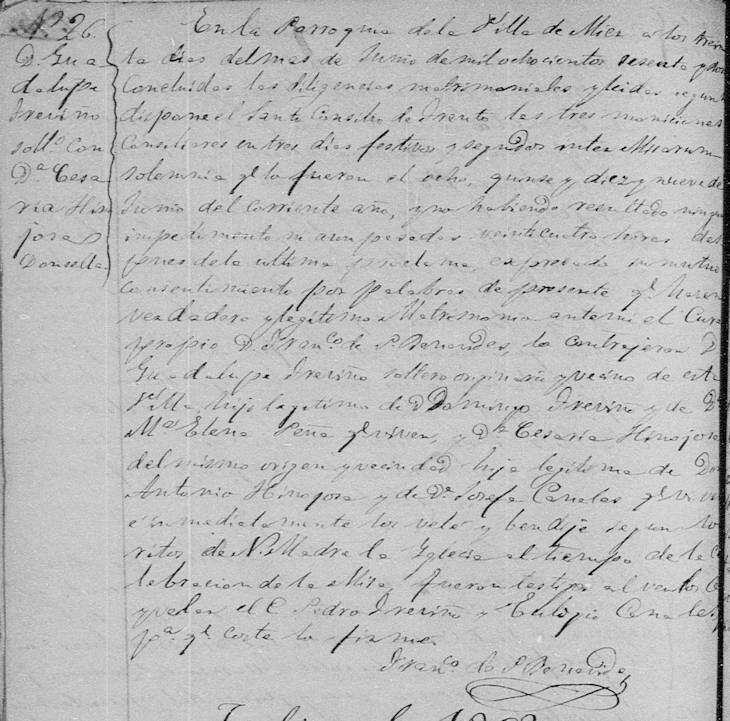 Nº 26.
D. Gua-
dalupe
Treviño
solt.º con
D.ª Cesa-
ria Hin
josa
Donsella.
En la Parroquia de la Villa de Mier a los trein
ta dias del mes de Junio de mil ochocientos sesenta y dos
Concluidas las diligencias matrimoniales y leidas segun
dispone el Santo Consilio de Trento las tres moniciones
Consiliares en tres dias festivos y seguidos inter Misarum
solemnia q.e lo fueron el ocho, quinse y diez y nueve de
Junio del corriente año, y no habiendo resultado ningun
impedimento ni aun pasadas veinticuatro horas des
pues de la ultima proclama, expresado su mutuo
Consentimiento por palabras de presente q.e
verdadero y legitimo Matrimonio ante mi el Cura
propio D. Fran.co de P. Benavides, lo contrajeron D.
Guadalupe Treviño soltero originario y vecino de esta
Villa, hijo legitimo de D. Domingo Treviño y de D.ª
M.ª Elena Peña q.e viven, y D.ª Cesaria Hinojosa
del mismo origen y vecindad hija legitima de Don
Antonio Hinojosa y de D.ª Josefa Canales q.e viven
é inmediatamente los velé y bendije segun los
ritos de N. Madre la Iglesia al tiempo de la ce
lebracion de la Misa, fueron testigos al verlos
y velar el C. Pedro Treviño y Eulogio Canales
p.a q.e coste lo firmé.
Fran.co de P. Benavides